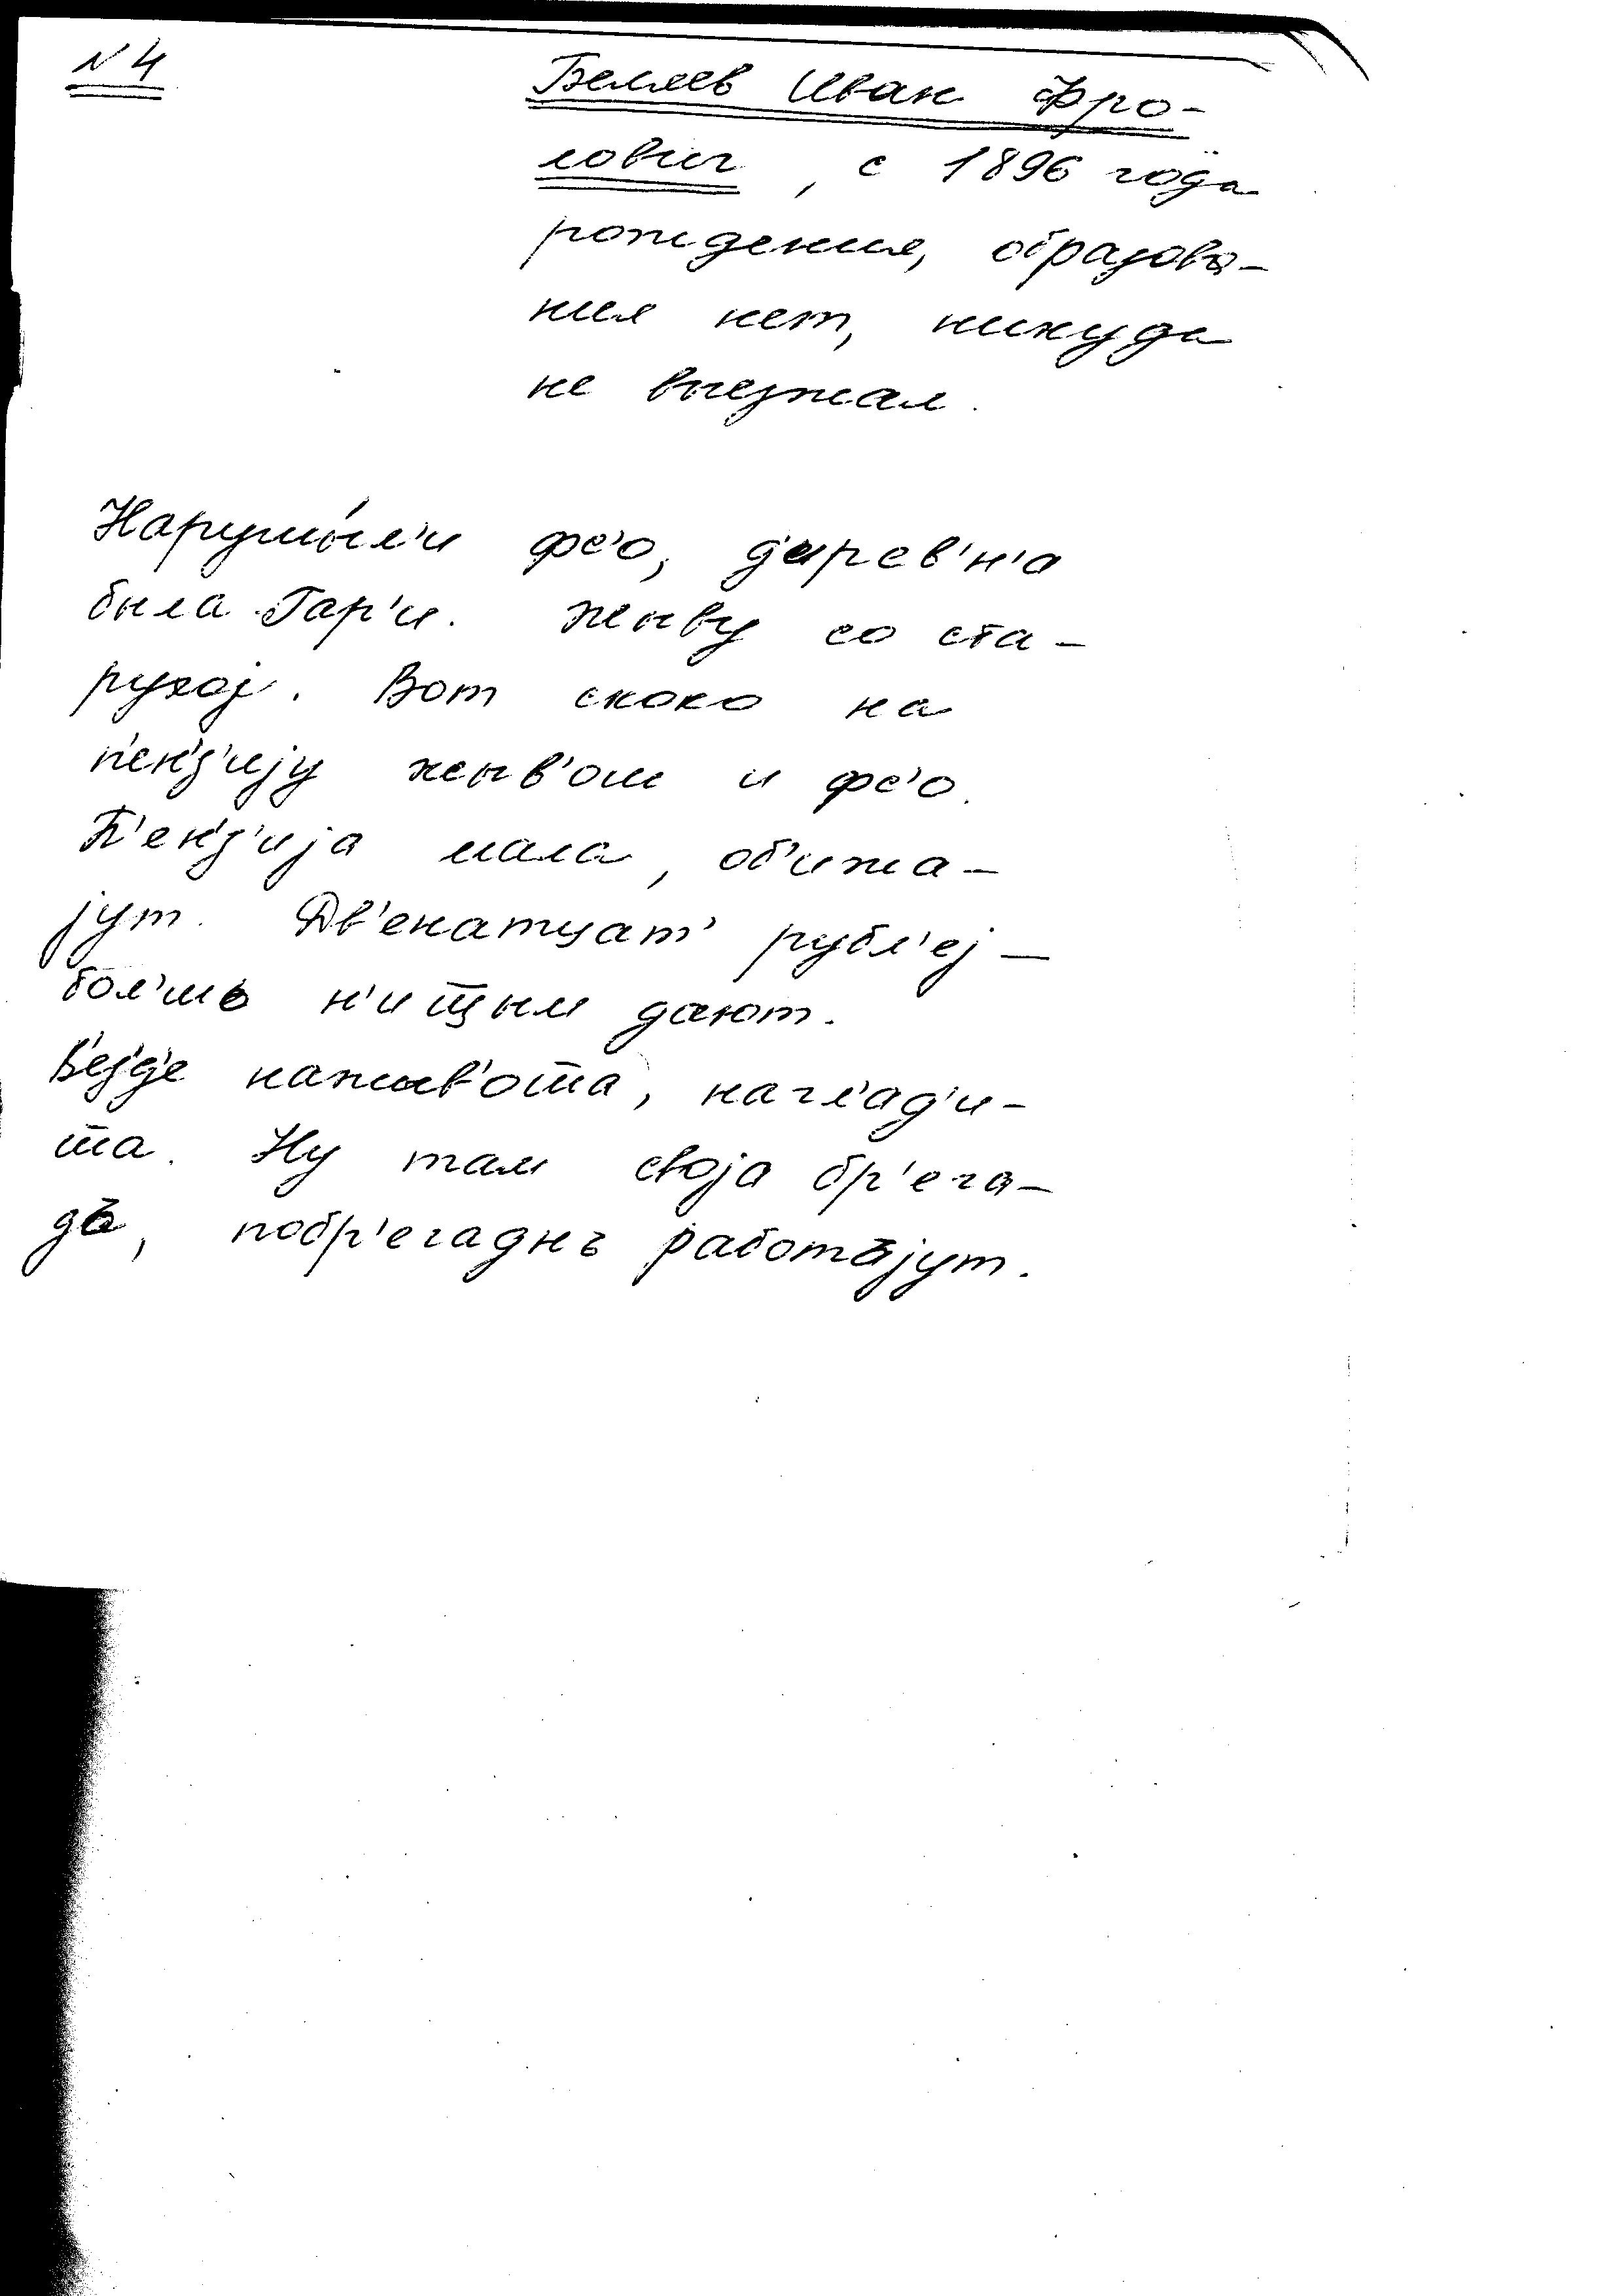 № 4
Беляев Иван Фро-
лович, с 1896 года
рождения, образова-
ния нет, никуда
не выезжал.
Нарушы́л'и фс'о, дирев'н'а
была Гар'и. Жыву со ста-
рухој. Вот скоко на
п'ен'з'ију жыв'ом и фс'о.
П'ен'з'ија мала, об'ижа-
јут. Дв'енатцат' рубл'еј —
бол'шь н'ищым дают.
В'ез'д'е нажыв'отта, нагл'ад'и-
тта. Ну там своја бр'ега-
дъ, побр'егаднъ работајут.